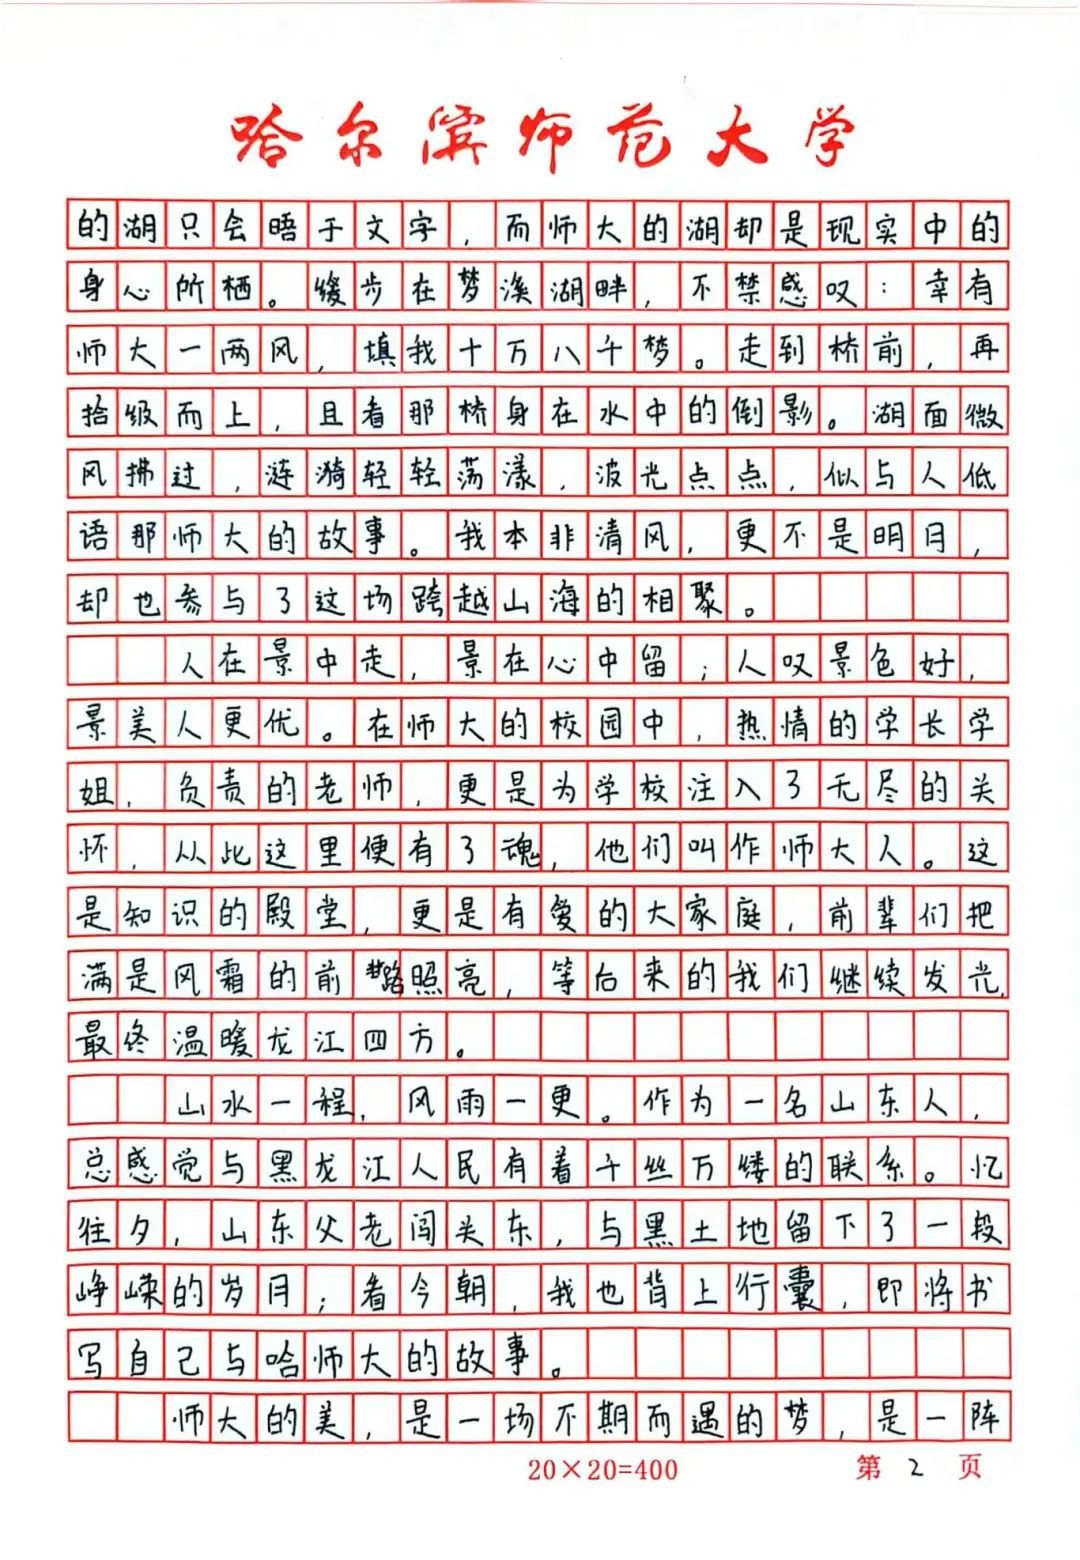 哈尔滨师范大学
的湖只会晤于文字，而师大的湖却是现实中的
身心所栖。缓步在梦溪湖畔，不禁感叹：幸有
师大一两风，填我十万八千梦。走到桥前，再
拾级而上，且看那桥身在水中的倒影。湖面微
风拂过，涟漪轻轻荡漾，波光点点，似与人低
语那师大的故事。我本非清风，更不是明月，
却也参与了这场跨越山海的相聚。
人在景中走，景在心中留；人叹景色好，
景美人更优。在师大的校园中，热情的学长学
姐，负责的老师，更是为学校注入了无尽的关
怀，从此这里便有了魂，他们叫作师大人。这
是知识的殿堂，更是有爱的大家庭，前辈们把
满是风霜的前路照亮，等后来的我们继续发光，
最终温暖龙江四方。
山水一程，风雨一更。作为一名山东人，
总感觉与黑龙江人民有着千丝万缕的联系。忆
往夕，山东父老闯关东，与黑土地留下了一段
峥嵘的岁月；看今朝，我也背上行囊，即将书
写自己与哈师大的故事。
师大的美，是一场不期而遇的梦，是一阵
20×20=400 第 2 页